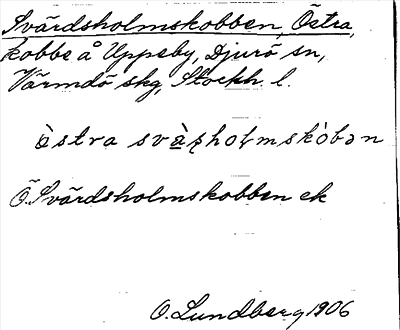 Svärdsholmskobben, Östra,
kobbe å Uppeby, Djurö sn,
Värmdö skg, Stockh. l.
östra svàṣhoḷmskòbən
Ö. Svärdsholmskobben ek
O. Lundberg 1906